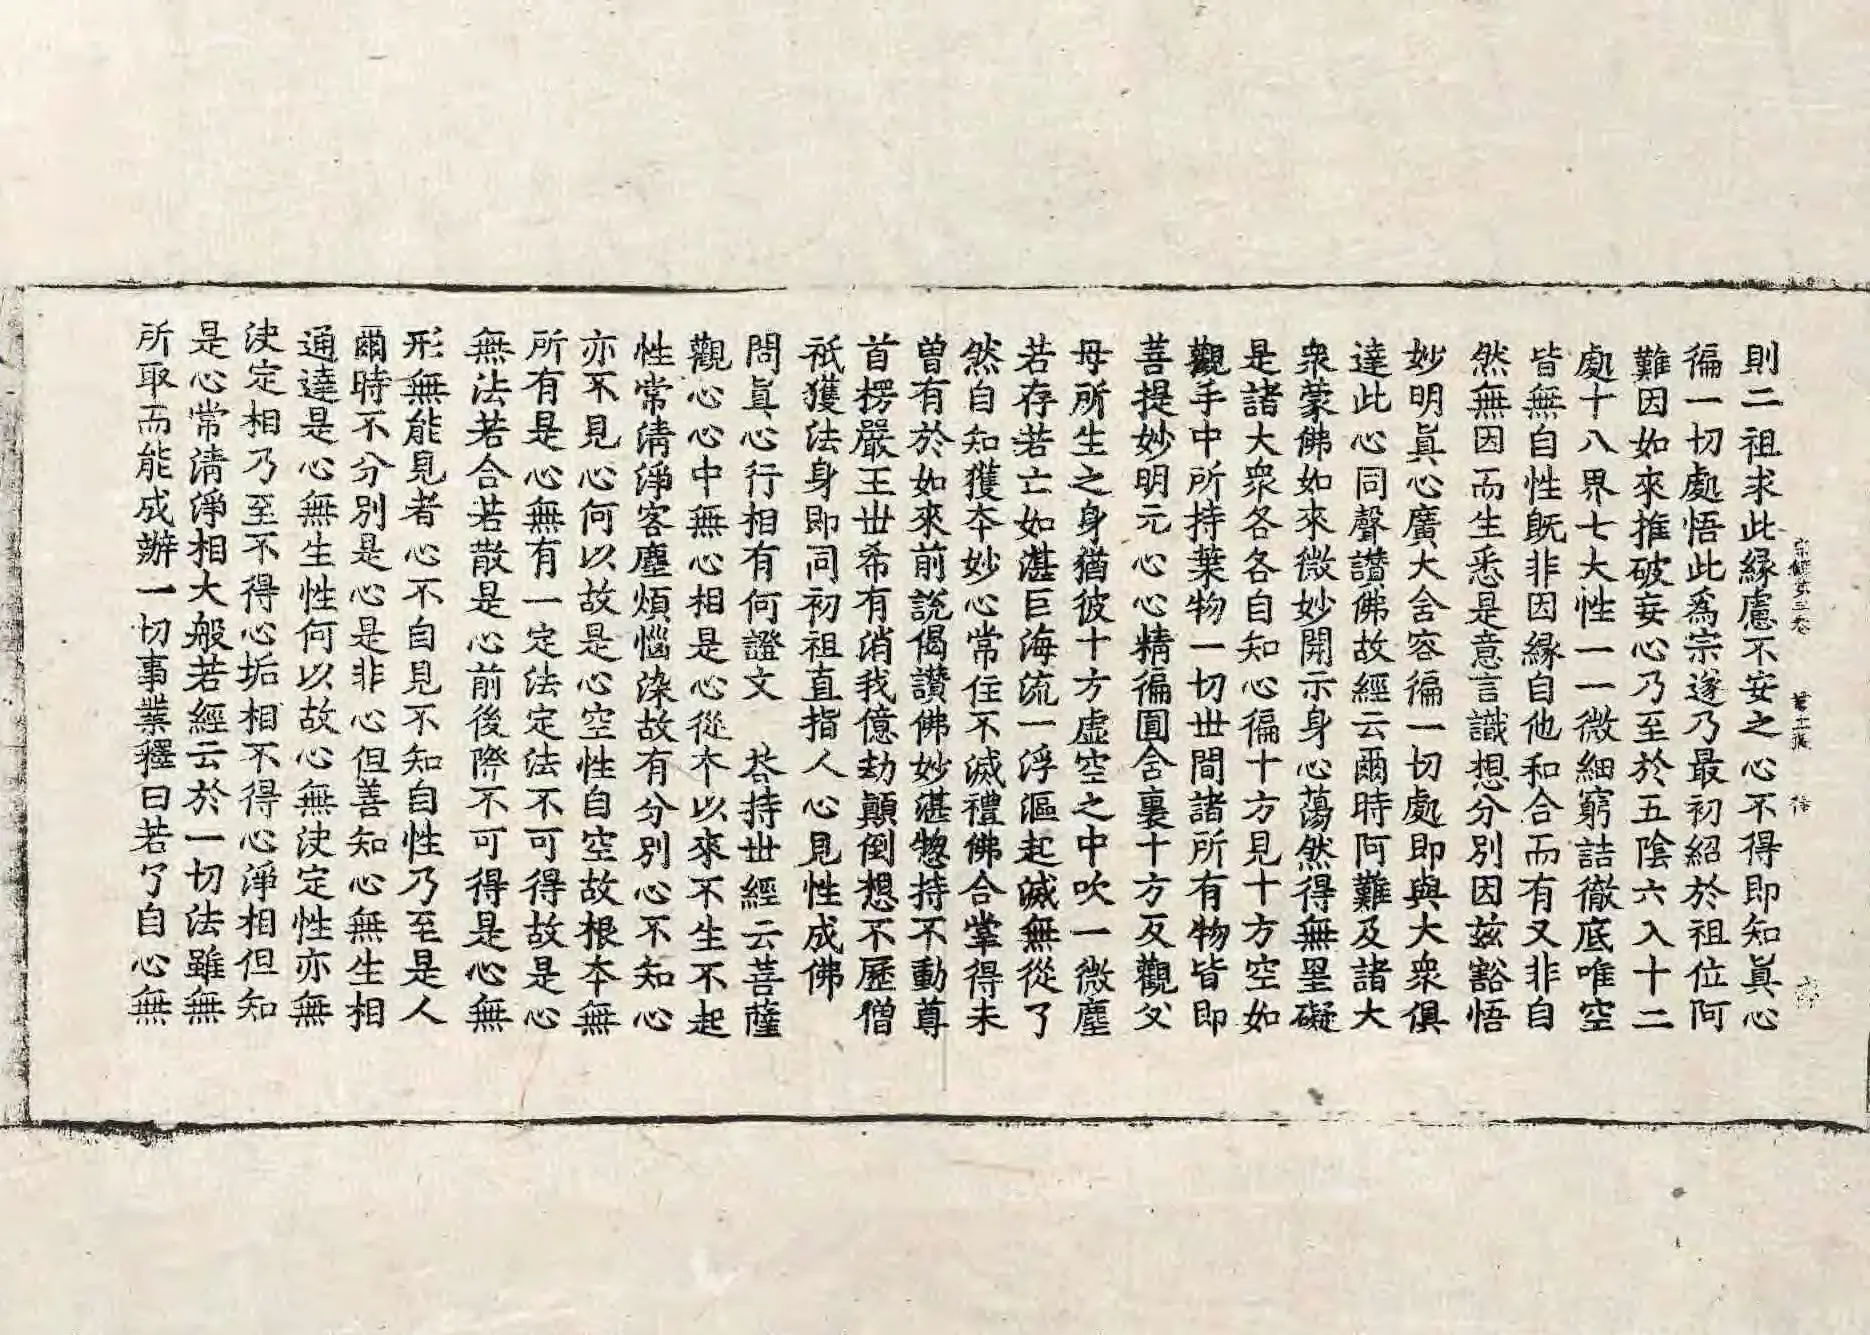 則二祖求此緣慮不安之心不得即知眞心
徧一切處悟此爲宗遂乃最初紹於祖位阿
難因如來推破妄心乃至於五陰六入十二
處十八界七大性一一微細窮詰徹底唯空
皆無自性旣非因緣自他和合而有又非自
然無因而生悉是意言識想分別因兹豁悟
妙明眞心廣大含容徧一切處即與大衆俱
達此心同聲讃佛故經云爾時阿難及諸大
衆蒙佛如來微妙開示身心蕩然得無罣礙
是諸大衆各各自知心徧十方見十方空如
觀手中所持葉物一切世間諸所有物皆即
菩提妙明元心心精徧圓含裏十方反觀父
母所生之身猶彼十方虛空之中吹一微塵
若存若亡如湛巨海流一浮漚起滅無從了
然自知獲夲妙心常住不滅禮佛合掌得未
曾有於如來前說偈讃佛妙湛惣持不動尊
首楞嚴王世希有消我億劫顛倒想不歷僧
祇獲法身即同初祖直指人心見性成佛
問眞心行相有何證文 荅持世經云菩薩
觀心心中無心相是心從夲以來不生不起
性常清淨客塵煩惱染故有分別心不知心
亦不見心何以故是心空性自空故根夲無
所有是心無有一定法定法不可得故是心
無法若合若散是心前後際不可得是心無
形無能見者心不自見不知自性乃至是人
爾時不分別是心是非心但善知心無生相
通達是心無生性何以故心無決定性亦無
決定相乃至不得心垢相不得心淨相但知
是心常清淨相大般若經云於一切法雖無
所取而能成辦一切事業釋曰若了自心無